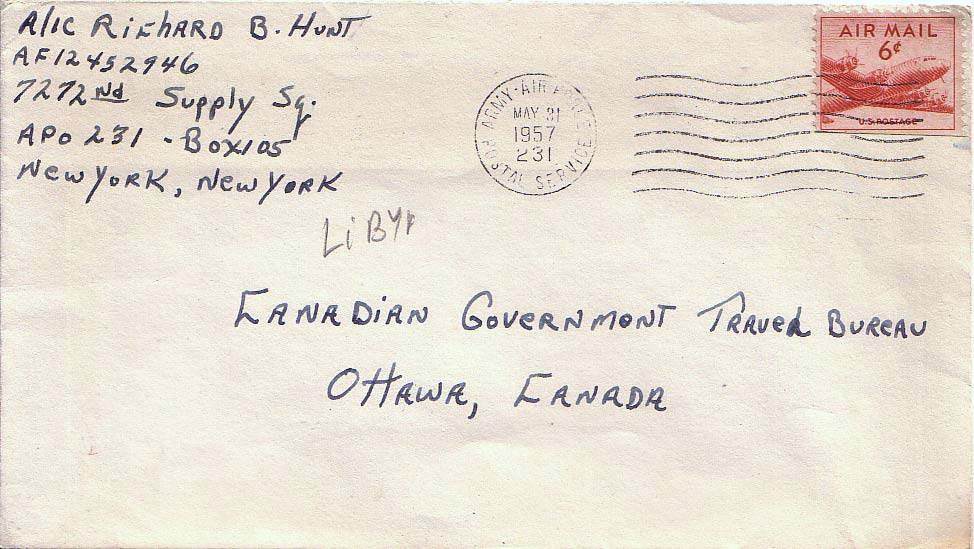 A/1C RicHARD B. HUNT
AF12452946
7272nd Supply Sq.
APO 231 - Box 105
New York, New York
ARMY-AIR FORCE
MAY 31
1957
231
POSTAL SERVICE
AIR MAIL
6¢
U.S. POSTAGE
LiBYA
CANADiAN GOVERNMONT TRAVEL BUREAU
OTTAWA, CANADA